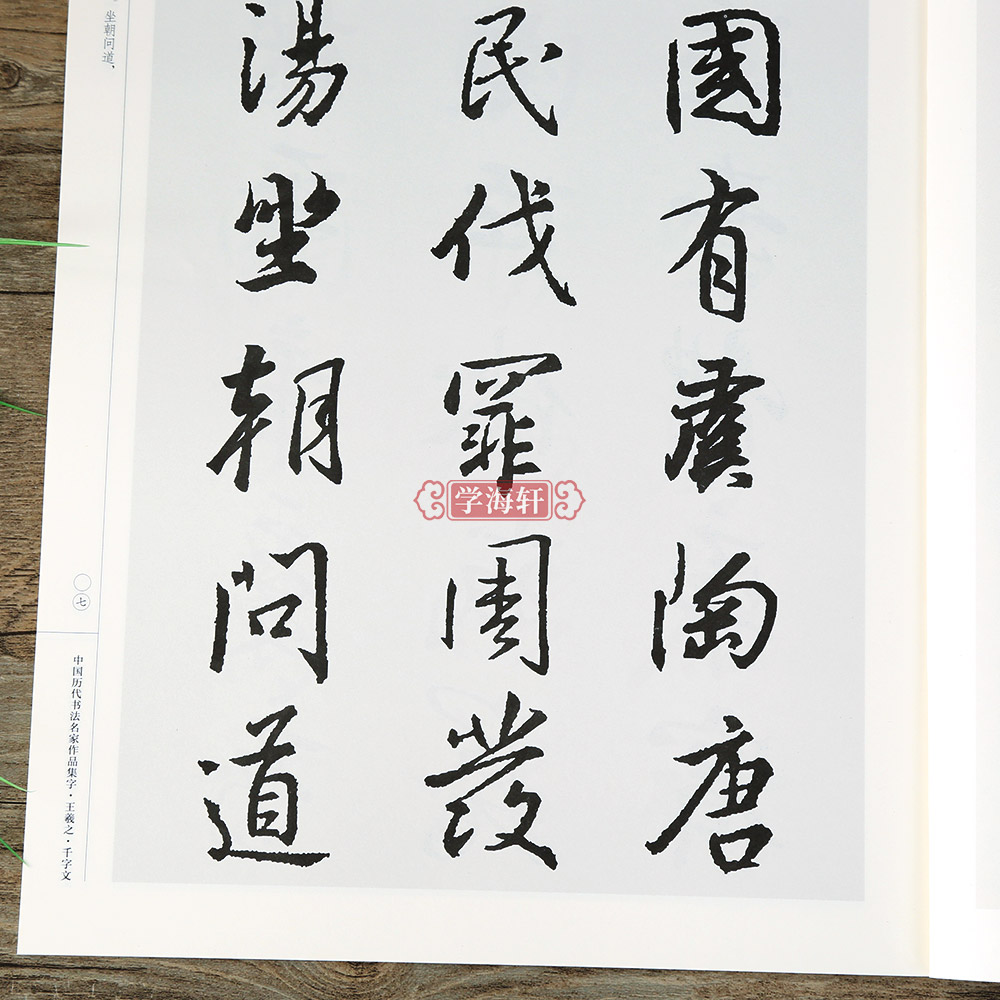 國有虞陶唐
民伐罪周發
湯坐朝问道
坐朝问道，
七
中国历代书法名家作品集字·王羲之·千字文
学海轩